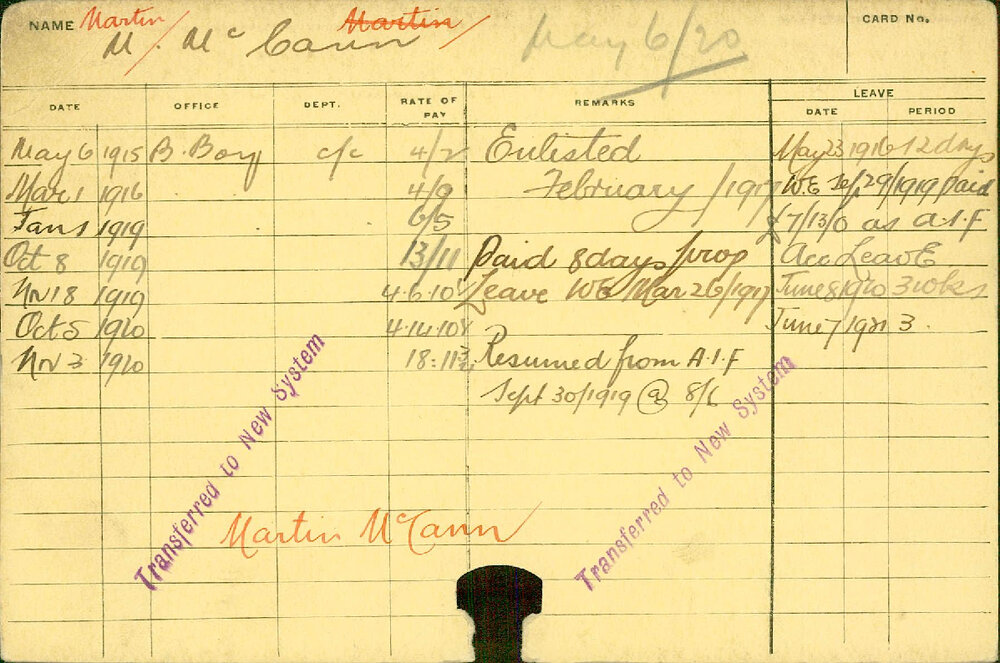 NAME Martin / M. McCann Martin / May 6/20 CARD No.
DATE OFFICE DEPT. RATE OF PAY REMARKS LEAVE
DATE PERIOD
May 6 1915 B. Boy c/c 4/2 Enlisted May 23 1916 12 days
Mar 1 1916 4/9 February /1917 WE 29/1919 Paid
Jan 1 1919 6/5 £7/13/0 as A.I.F
Oct 8 1919 13/11 Paid 8 days prop Acc Leave
Nv 18 1919 4.6.10 Leave WE Mar 26/1917 June 8 1920 3 wks
Oct 5 1920 4.14.10 June 7 1921 3.
Nv 3 1920 18:11 Resumed from A.I.F
Sept 30/1919 @ 8/6
Transferred to New System
Transferred to New System
Martin McCann